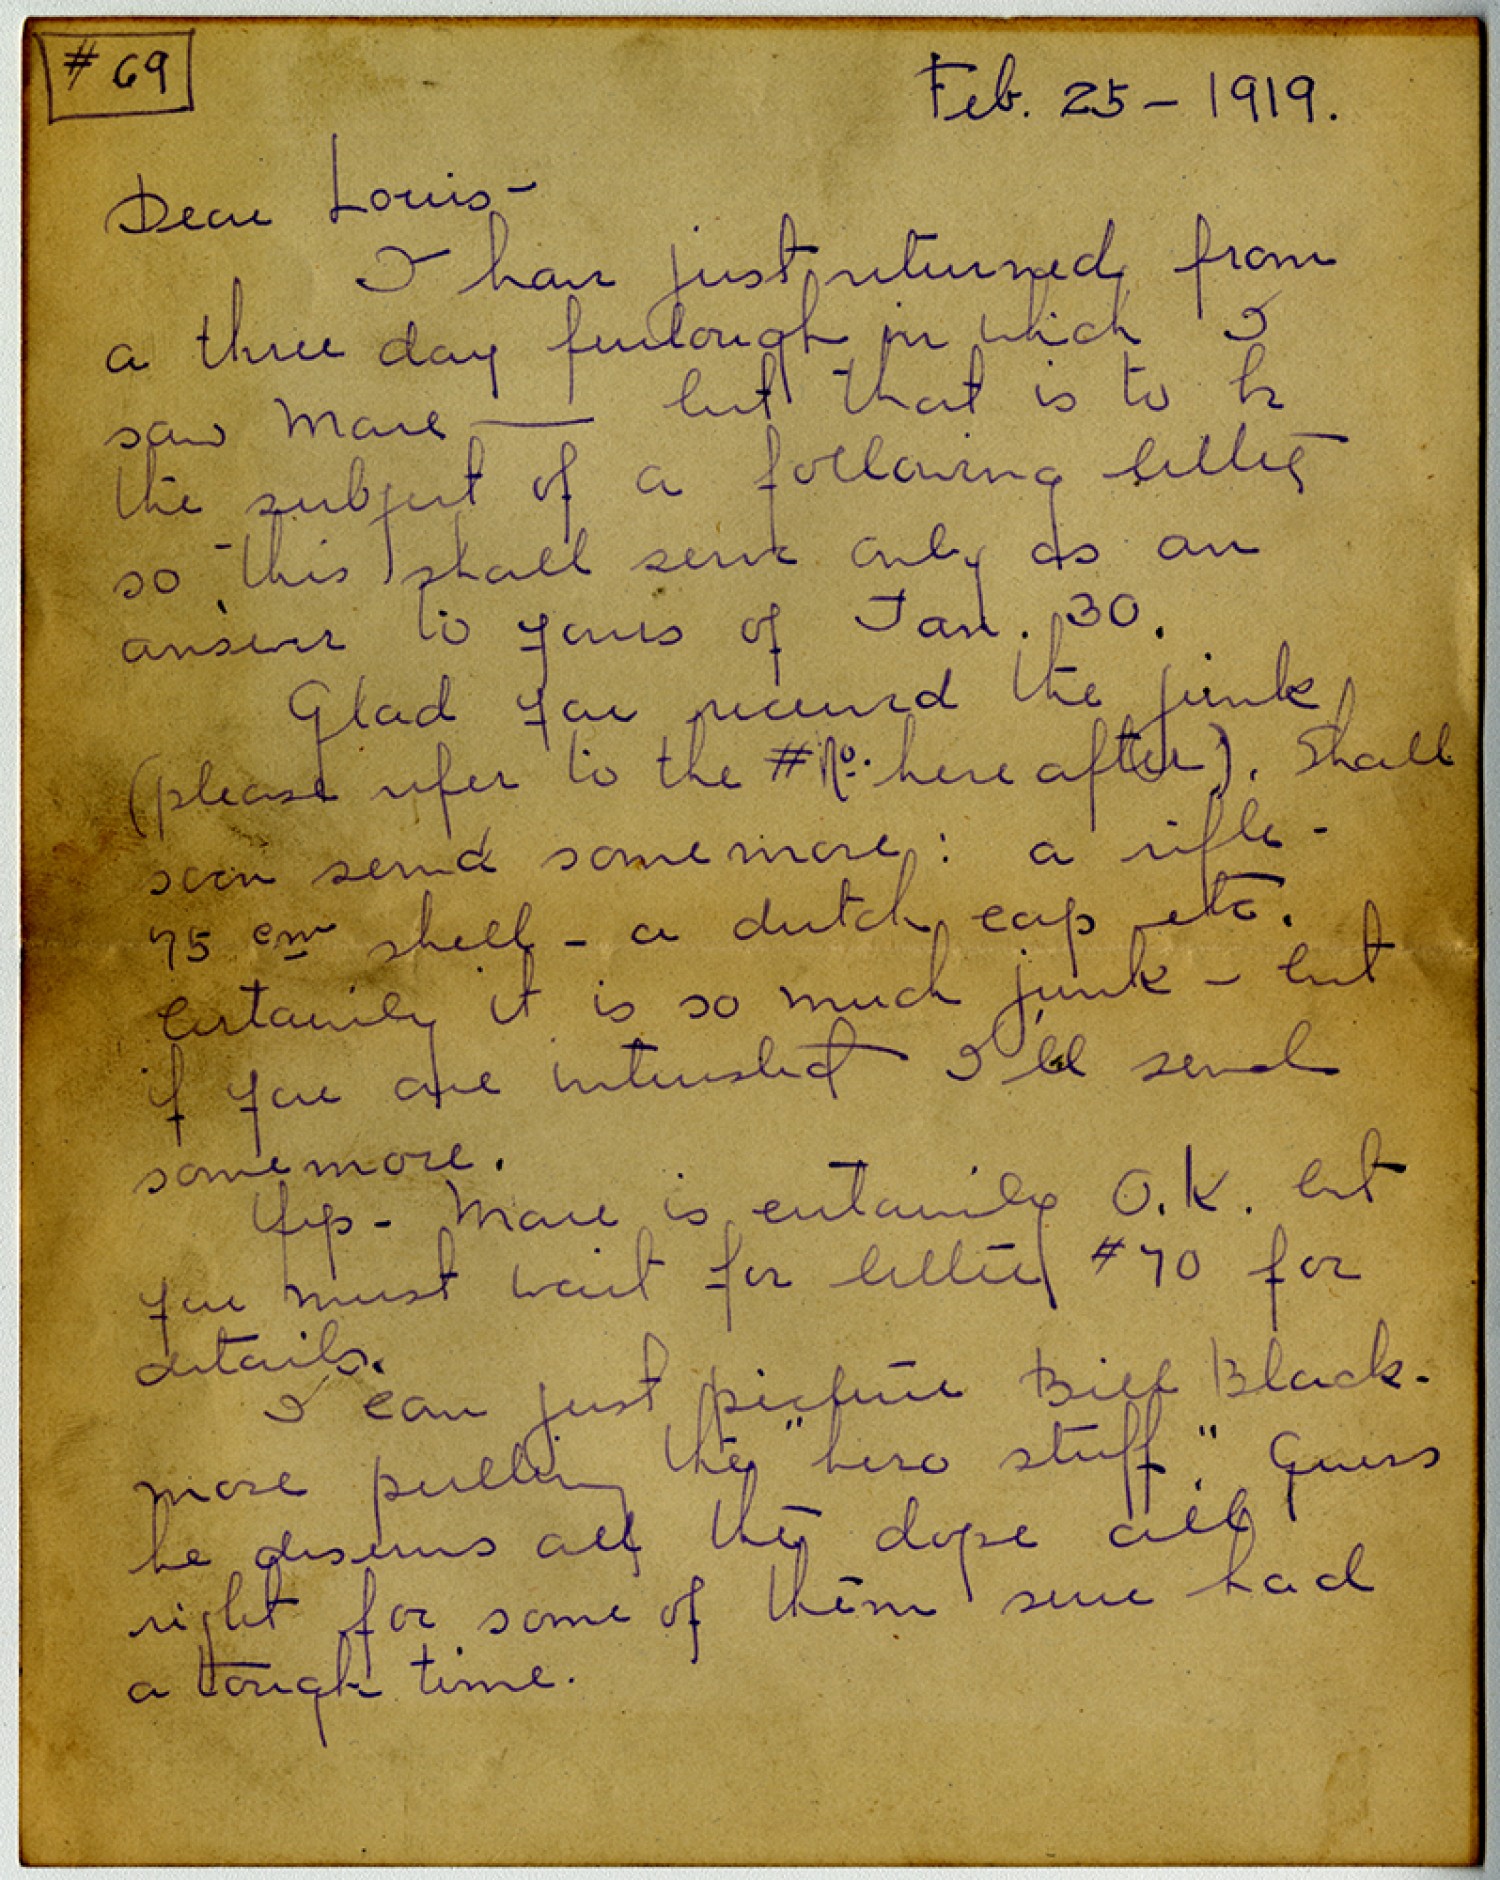 #69
Feb. 25 - 1919.
Dear Louis -
I have just returned from
a three day furlough in which I
saw Marc —— but that is to be
the subject of a following letter
so this shall serve only as an
answer to yours of Jan. 30.
Glad you received the junk
(please refer to the # No. hereafter). Shall
soon send somemore: a rifle -
75 cm shell - a dutch cap etc.
Certainly it is so much junk - but
if you are interested I'll send
somemore.
Yep - Marc is certainly O.K. but
you must wait for letter #70 for
details.
I can just picture Bill Black-
more pulling the "hero stuff." Guess
he deserves all the dope all
right for some of them sure had
a tough time.